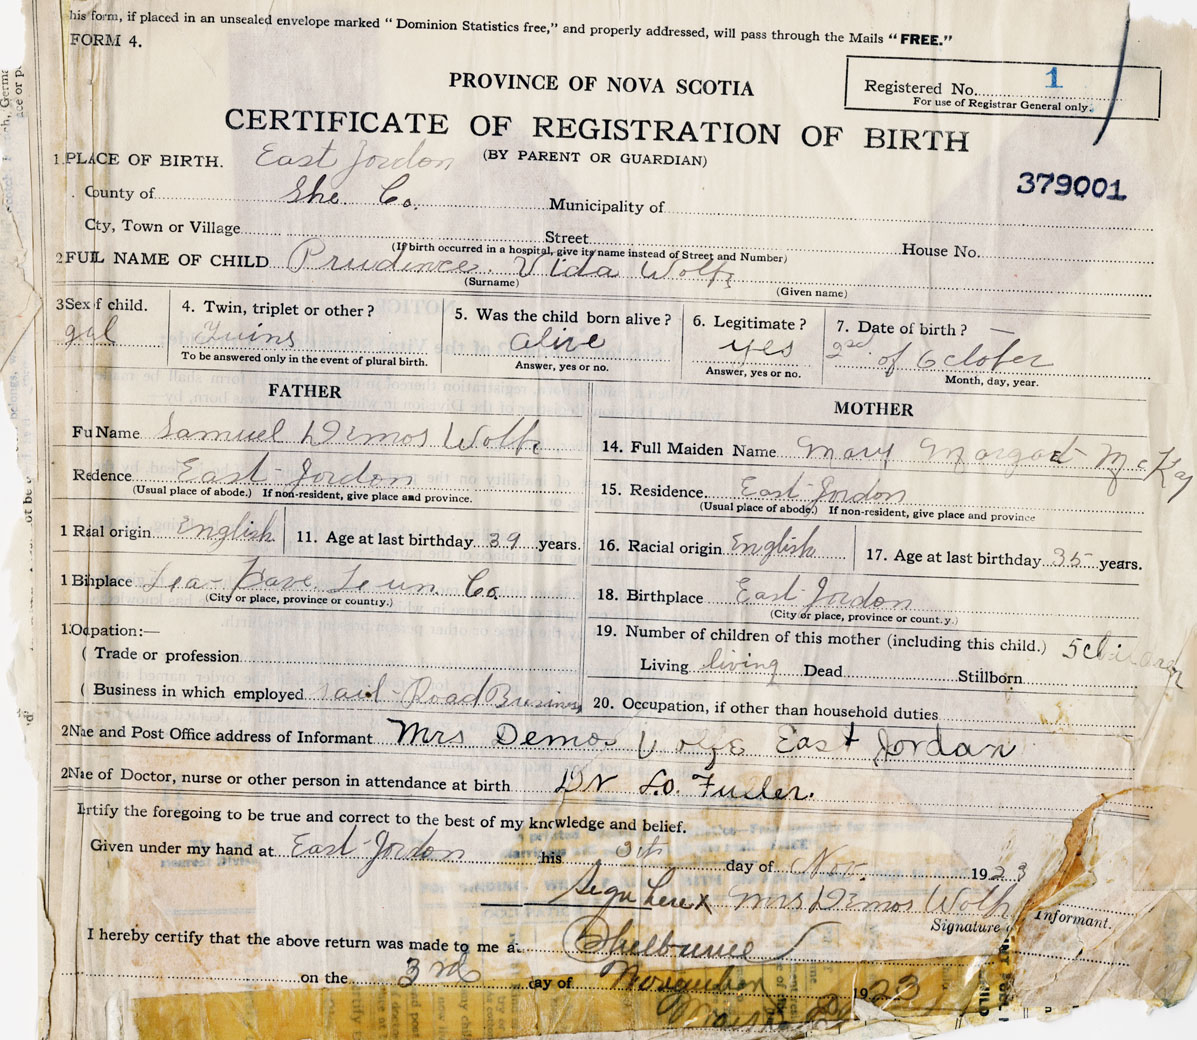 his form, if placed in an unsealed envelope marked "Dominion Statistics free," and properly addressed, will pass through the Mails "FREE."
FORM 4.
PROVINCE OF NOVA SCOTIA
Registered No. 1
For use of Registrar General only.
CERTIFICATE OF REGISTRATION OF BIRTH
(BY PARENT OR GUARDIAN)
379001
1. PLACE OF BIRTH. East Jordon
County of She. Co. Municipality of
Cty, Town or Village Street House No.
(If birth occurred in a hospital, give its name instead of Street and Number)
2 FULL NAME OF CHILD Prudince. Vida Wolfe
(Surname) (Given name)
3 Sex f child. gal
4. Twin, triplet or other? Twins
To be answered only in the event of plural birth.
5. Was the child born alive? alive
Answer, yes or no.
6. Legitimate? yes
Answer, yes or no.
7. Date of birth? — 2nd of October
Month, day, year.
FATHER
Fu Name Samuel Demos Wolfe
Redence East Jordon
(Usual place of abode.) If non-resident, give place and province.
1 Raial origin English 11. Age at last birthday 39 years.
1 Bihplace Lea-Have Leun. Co
(City or place, province or country.)
1. Ocpation:—
( Trade or profession
( Business in which employed rail-Road Business
MOTHER
14. Full Maiden Name Mary Margaet McKay
15. Residence East Jordon
(Usual place of abode.) If non-resident, give place and province
16. Racial origin English 17. Age at last birthday 35 years.
18. Birthplace East Jordon
(City or place, province or country.)
19. Number of children of this mother (including this child.) 5
Living living Dead Stillborn
20. Occupation, if other than household duties
2 Nae and Post Office address of Informant Mrs Demos East Jordan
2 Nae of Doctor, nurse or other person in attendance at birth Dr L.O. Fuller.
I ertify the foregoing to be true and correct to the best of my knowledge and belief.
Given under my hand at East Jordon his day of Nov. 1923
Sign here X Mrs Demos Wolfe
Signature Informant.
I hereby certify that the above return was made to me at Shelburne
on the 3rd day of 1923